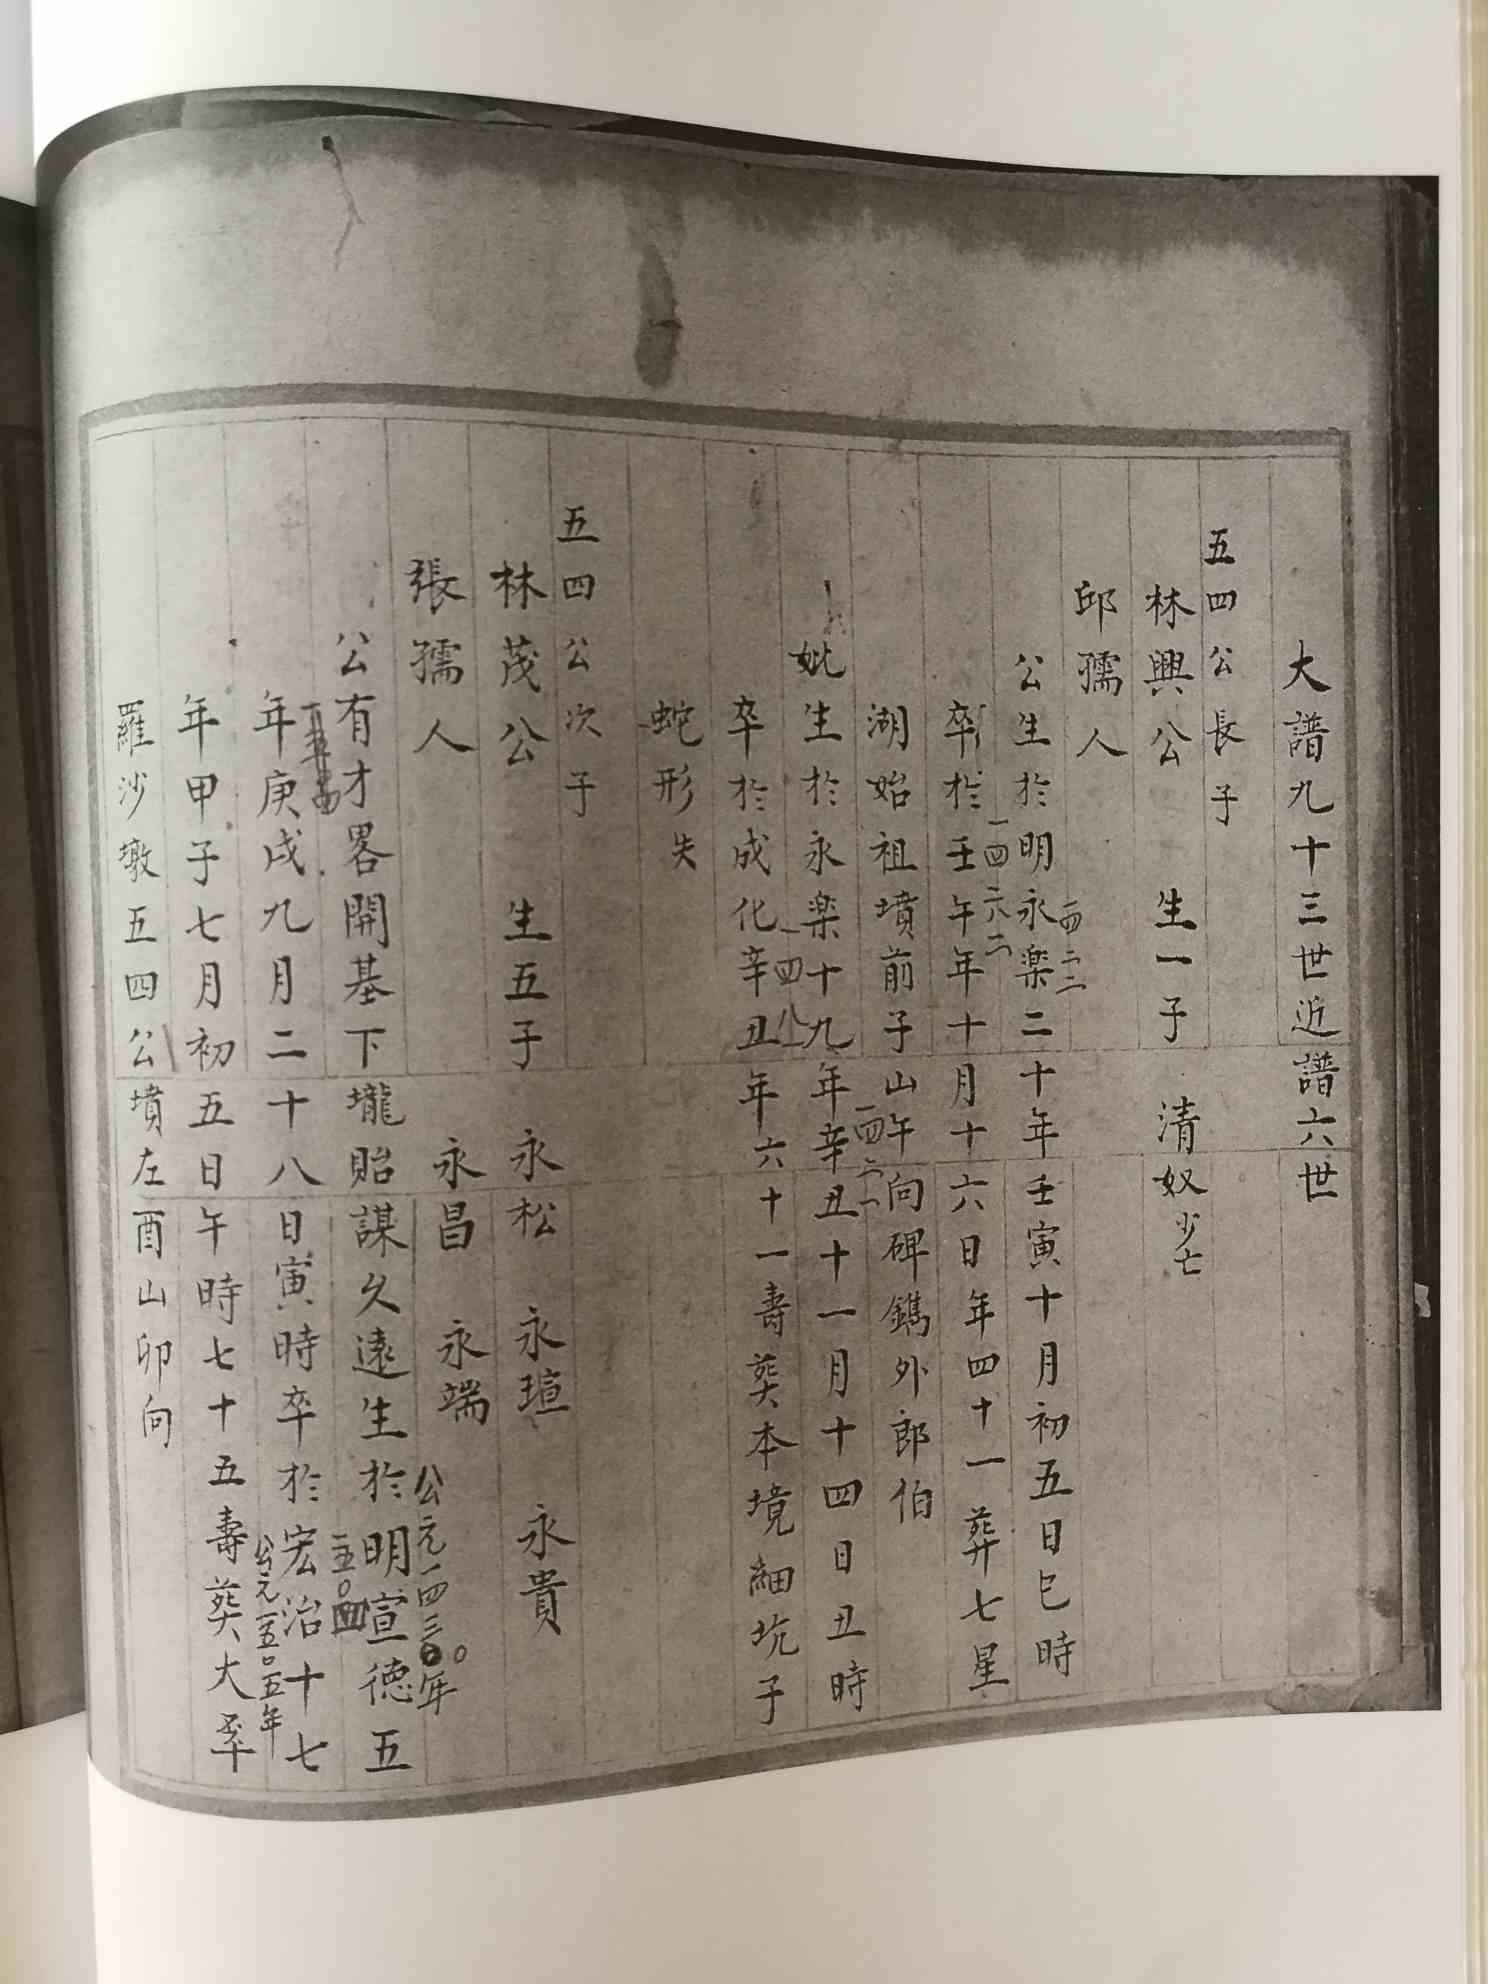 大譜九十三世近譜六世
五四公長子
林興公 生一子 清奴少亡
邱孺人
一四二二
公生於明永樂二十年壬寅十月初五日巳時
一四六二
卒於壬午年十月十六日年四十一葬七星
湖始祖墳前子山午向碑鐫外郎伯
一四二一
妣生於永楽十九年辛丑十一月十四日丑時
一四八一
卒於成化辛丑年六十一壽葬本境細坑子
蛇形失
五四公次子
林茂公 生五子 永松 永瑄 永貴
張孺人 永昌 永端
公元一四三〇年
公有才畧開基下壠貽謀久遠生於明宣德五
一五〇四
年庚戌九月二十八日寅時卒於宏治十七
公元一五〇五年
年甲子七月初五日午時七十五壽葬大平
羅沙墩五四公墳左酉山卯向